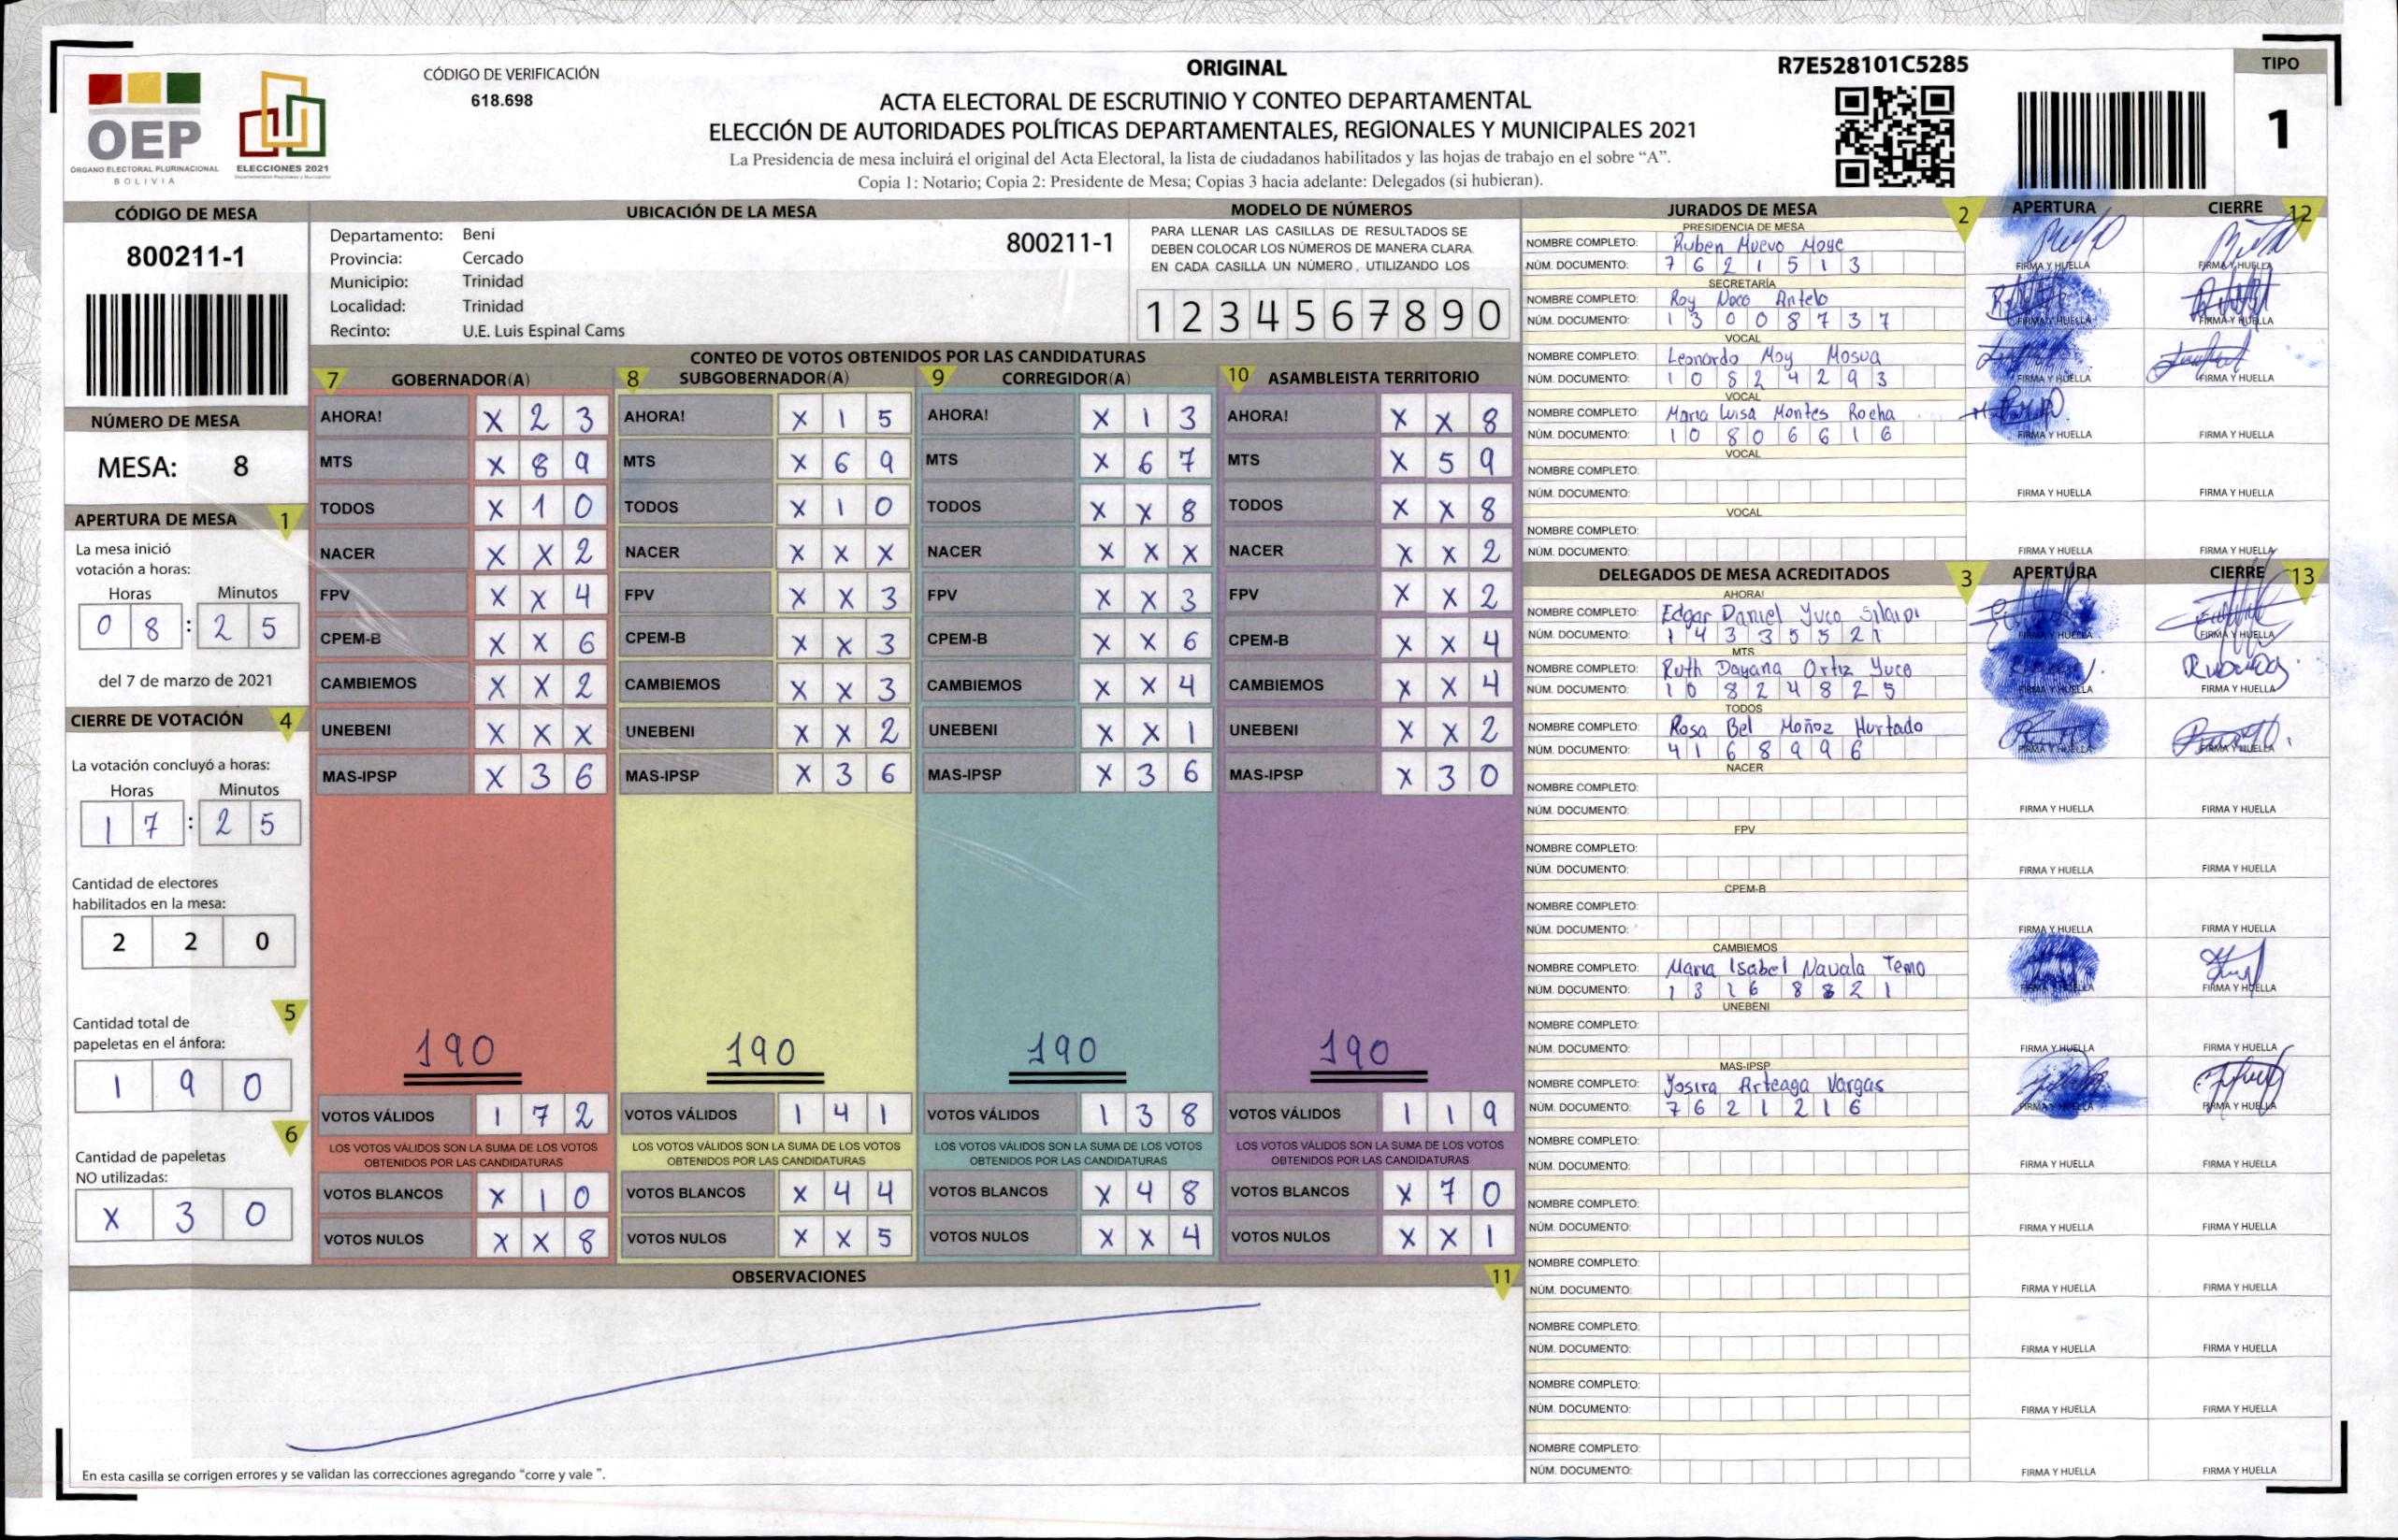 CÓDIGO DE VERIFICACIÓN
618.698
OEP
ÓRGANO ELECTORAL PLURINACIONAL
BOLIVIA
ELECCIONES 2021
ORIGINAL
ACTA ELECTORAL DE ESCRUTINIO Y CONTEO DEPARTAMENTAL
ELECCIÓN DE AUTORIDADES POLÍTICAS DEPARTAMENTALES, REGIONALES Y MUNICIPALES 2021
La Presidencia de mesa incluirá el original del Acta Electoral, la lista de ciudadanos habilitados y las hojas de trabajo en el sobre “A”.
Copia 1: Notario; Copia 2: Presidente de Mesa; Copias 3 hacia adelante: Delegados (si hubieran).
R7E528101C5285
TIPO
1
CÓDIGO DE MESA
800211-1
NÚMERO DE MESA
MESA: 8
APERTURA DE MESA 1
La mesa inició
votación a horas:
Horas Minutos
0 8 : 2 5
del 7 de marzo de 2021
CIERRE DE VOTACIÓN 4
La votación concluyó a horas:
Horas Minutos
1 7 : 2 5
Cantidad de electores
habilitados en la mesa:
2 2 0
5
Cantidad total de
papeletas en el ánfora:
1 9 0
6
Cantidad de papeletas
NO utilizadas:
X 3 0
UBICACIÓN DE LA MESA
Departamento: Beni 800211-1
Provincia: Cercado
Municipio: Trinidad
Localidad: Trinidad
Recinto: U.E. Luis Espinal Cams
MODELO DE NÚMEROS
PARA LLENAR LAS CASILLAS DE RESULTADOS SE
DEBEN COLOCAR LOS NÚMEROS DE MANERA CLARA
EN CADA CASILLA UN NÚMERO, UTILIZANDO LOS
1 2 3 4 5 6 7 8 9 0
CONTEO DE VOTOS OBTENIDOS POR LAS CANDIDATURAS
7 GOBERNADOR(A) 8 SUBGOBERNADOR(A) 9 CORREGIDOR(A) 10 ASAMBLEISTA TERRITORIO
AHORA! X 2 3 AHORA! X 1 5 AHORA! X 1 3 AHORA! X X 8
MTS X 8 9 MTS X 6 9 MTS X 6 7 MTS X 5 9
TODOS X 1 0 TODOS X 1 0 TODOS X X 8 TODOS X X 8
NACER X X 2 NACER X X X NACER X X X NACER X X 2
FPV X X 4 FPV X X 3 FPV X X 3 FPV X X 2
CPEM-B X X 6 CPEM-B X X 3 CPEM-B X X 6 CPEM-B X X 4
CAMBIEMOS X X 2 CAMBIEMOS X X 3 CAMBIEMOS X X 4 CAMBIEMOS X X 4
UNEBENI X X X UNEBENI X X 2 UNEBENI X X 1 UNEBENI X X 2
MAS-IPSP X 3 6 MAS-IPSP X 3 6 MAS-IPSP X 3 6 MAS-IPSP X 3 0
190 190 190 190
VOTOS VÁLIDOS 1 7 2 VOTOS VÁLIDOS 1 4 1 VOTOS VÁLIDOS 1 3 8 VOTOS VÁLIDOS 1 1 9
LOS VOTOS VÁLIDOS SON LA SUMA DE LOS VOTOS LOS VOTOS VÁLIDOS SON LA SUMA DE LOS VOTOS LOS VOTOS VÁLIDOS SON LA SUMA DE LOS VOTOS LOS VOTOS VÁLIDOS SON LA SUMA DE LOS VOTOS
OBTENIDOS POR LAS CANDIDATURAS OBTENIDOS POR LAS CANDIDATURAS OBTENIDOS POR LAS CANDIDATURAS OBTENIDOS POR LAS CANDIDATURAS
VOTOS BLANCOS X 1 0 VOTOS BLANCOS X 4 4 VOTOS BLANCOS X 4 8 VOTOS BLANCOS X 7 0
VOTOS NULOS X X 8 VOTOS NULOS X X 5 VOTOS NULOS X X 4 VOTOS NULOS X X 1
OBSERVACIONES 11
En esta casilla se corrigen errores y se validan las correcciones agregando “corre y vale ”.
JURADOS DE MESA 2 APERTURA CIERRE 12
PRESIDENCIA DE MESA
NOMBRE COMPLETO: Ruben Muevo Moye
NÚM. DOCUMENTO: 7 6 2 1 5 1 3 FIRMA Y HUELLA FIRMA Y HUELLA
SECRETARÍA
NOMBRE COMPLETO: Roy Noco Antelo
NÚM. DOCUMENTO: 1 3 0 0 8 7 3 7 FIRMA Y HUELLA FIRMA Y HUELLA
VOCAL
NOMBRE COMPLETO: Leonardo Moy Mosua
NÚM. DOCUMENTO: 1 0 8 2 4 2 9 3 FIRMA Y HUELLA FIRMA Y HUELLA
VOCAL
NOMBRE COMPLETO: Maria Luisa Montes Rocha
NÚM. DOCUMENTO: 1 0 8 0 6 6 1 6 FIRMA Y HUELLA FIRMA Y HUELLA
VOCAL
NOMBRE COMPLETO:
NÚM. DOCUMENTO: FIRMA Y HUELLA FIRMA Y HUELLA
VOCAL
NOMBRE COMPLETO:
NÚM. DOCUMENTO: FIRMA Y HUELLA FIRMA Y HUELLA
DELEGADOS DE MESA ACREDITADOS 3 APERTURA CIERRE 13
AHORA!
NOMBRE COMPLETO: Edgar Daniel Yuco
NÚM. DOCUMENTO: 1 4 3 3 5 5 2 1 FIRMA Y HUELLA FIRMA Y HUELLA
MTS
NOMBRE COMPLETO: Ruth Dayana Ortiz Yuco
NÚM. DOCUMENTO: 1 0 8 2 4 8 2 5 FIRMA Y HUELLA FIRMA Y HUELLA
TODOS
NOMBRE COMPLETO: Rosa Bel Moñoz Hurtado
NÚM. DOCUMENTO: 4 1 6 8 9 9 6 FIRMA Y HUELLA FIRMA Y HUELLA
NACER
NOMBRE COMPLETO:
NÚM. DOCUMENTO: FIRMA Y HUELLA FIRMA Y HUELLA
FPV
NOMBRE COMPLETO:
NÚM. DOCUMENTO: FIRMA Y HUELLA FIRMA Y HUELLA
CPEM-B
NOMBRE COMPLETO:
NÚM. DOCUMENTO: FIRMA Y HUELLA FIRMA Y HUELLA
CAMBIEMOS
NOMBRE COMPLETO: Maria Isabel Navala Temo
NÚM. DOCUMENTO: 1 3 1 6 8 8 2 1 FIRMA Y HUELLA FIRMA Y HUELLA
UNEBENI
NOMBRE COMPLETO:
NÚM. DOCUMENTO: FIRMA Y HUELLA FIRMA Y HUELLA
MAS-IPSP
NOMBRE COMPLETO: Yosira Arteaga Vargas
NÚM. DOCUMENTO: 7 6 2 1 2 1 6 FIRMA Y HUELLA FIRMA Y HUELLA
NOMBRE COMPLETO:
NÚM. DOCUMENTO: FIRMA Y HUELLA FIRMA Y HUELLA
NOMBRE COMPLETO:
NÚM. DOCUMENTO: FIRMA Y HUELLA FIRMA Y HUELLA
NOMBRE COMPLETO:
NÚM. DOCUMENTO: FIRMA Y HUELLA FIRMA Y HUELLA
NOMBRE COMPLETO:
NÚM. DOCUMENTO: FIRMA Y HUELLA FIRMA Y HUELLA
NOMBRE COMPLETO:
NÚM. DOCUMENTO: FIRMA Y HUELLA FIRMA Y HUELLA
NOMBRE COMPLETO:
NÚM. DOCUMENTO: FIRMA Y HUELLA FIRMA Y HUELLA